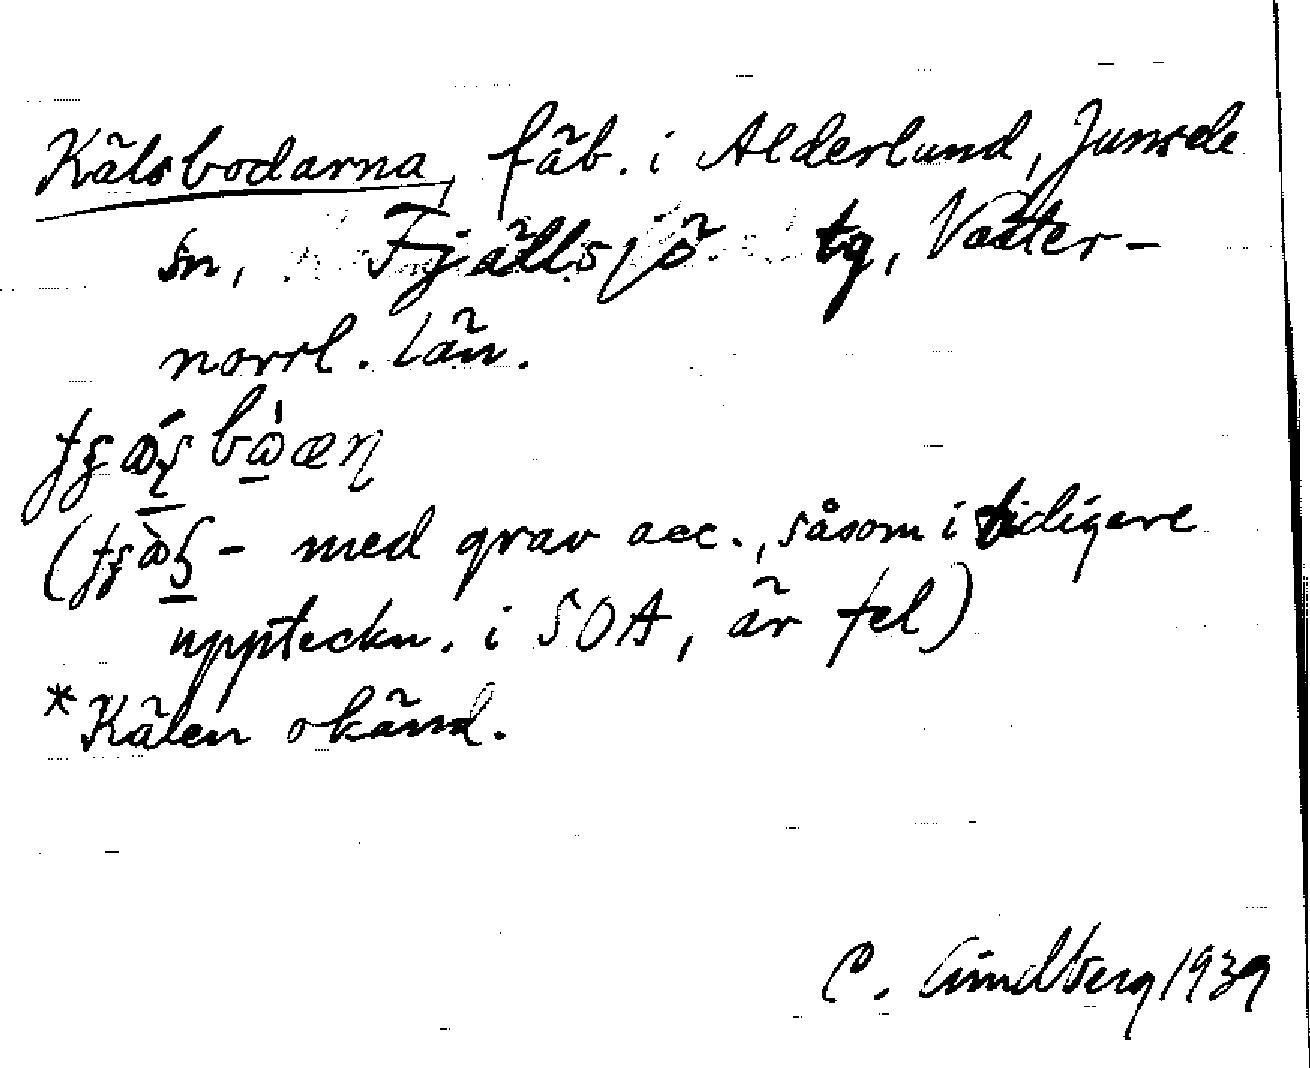 Kälsbodarna, fäb. i Alderlund, Junsele
sn, Fjällsjö tg, Väster-
norrl. län.
( - med grav acc., såsom i tidigere
uppteckn. i SOA, är fel)
*Kälen okänd.
C. Lindberg 1939